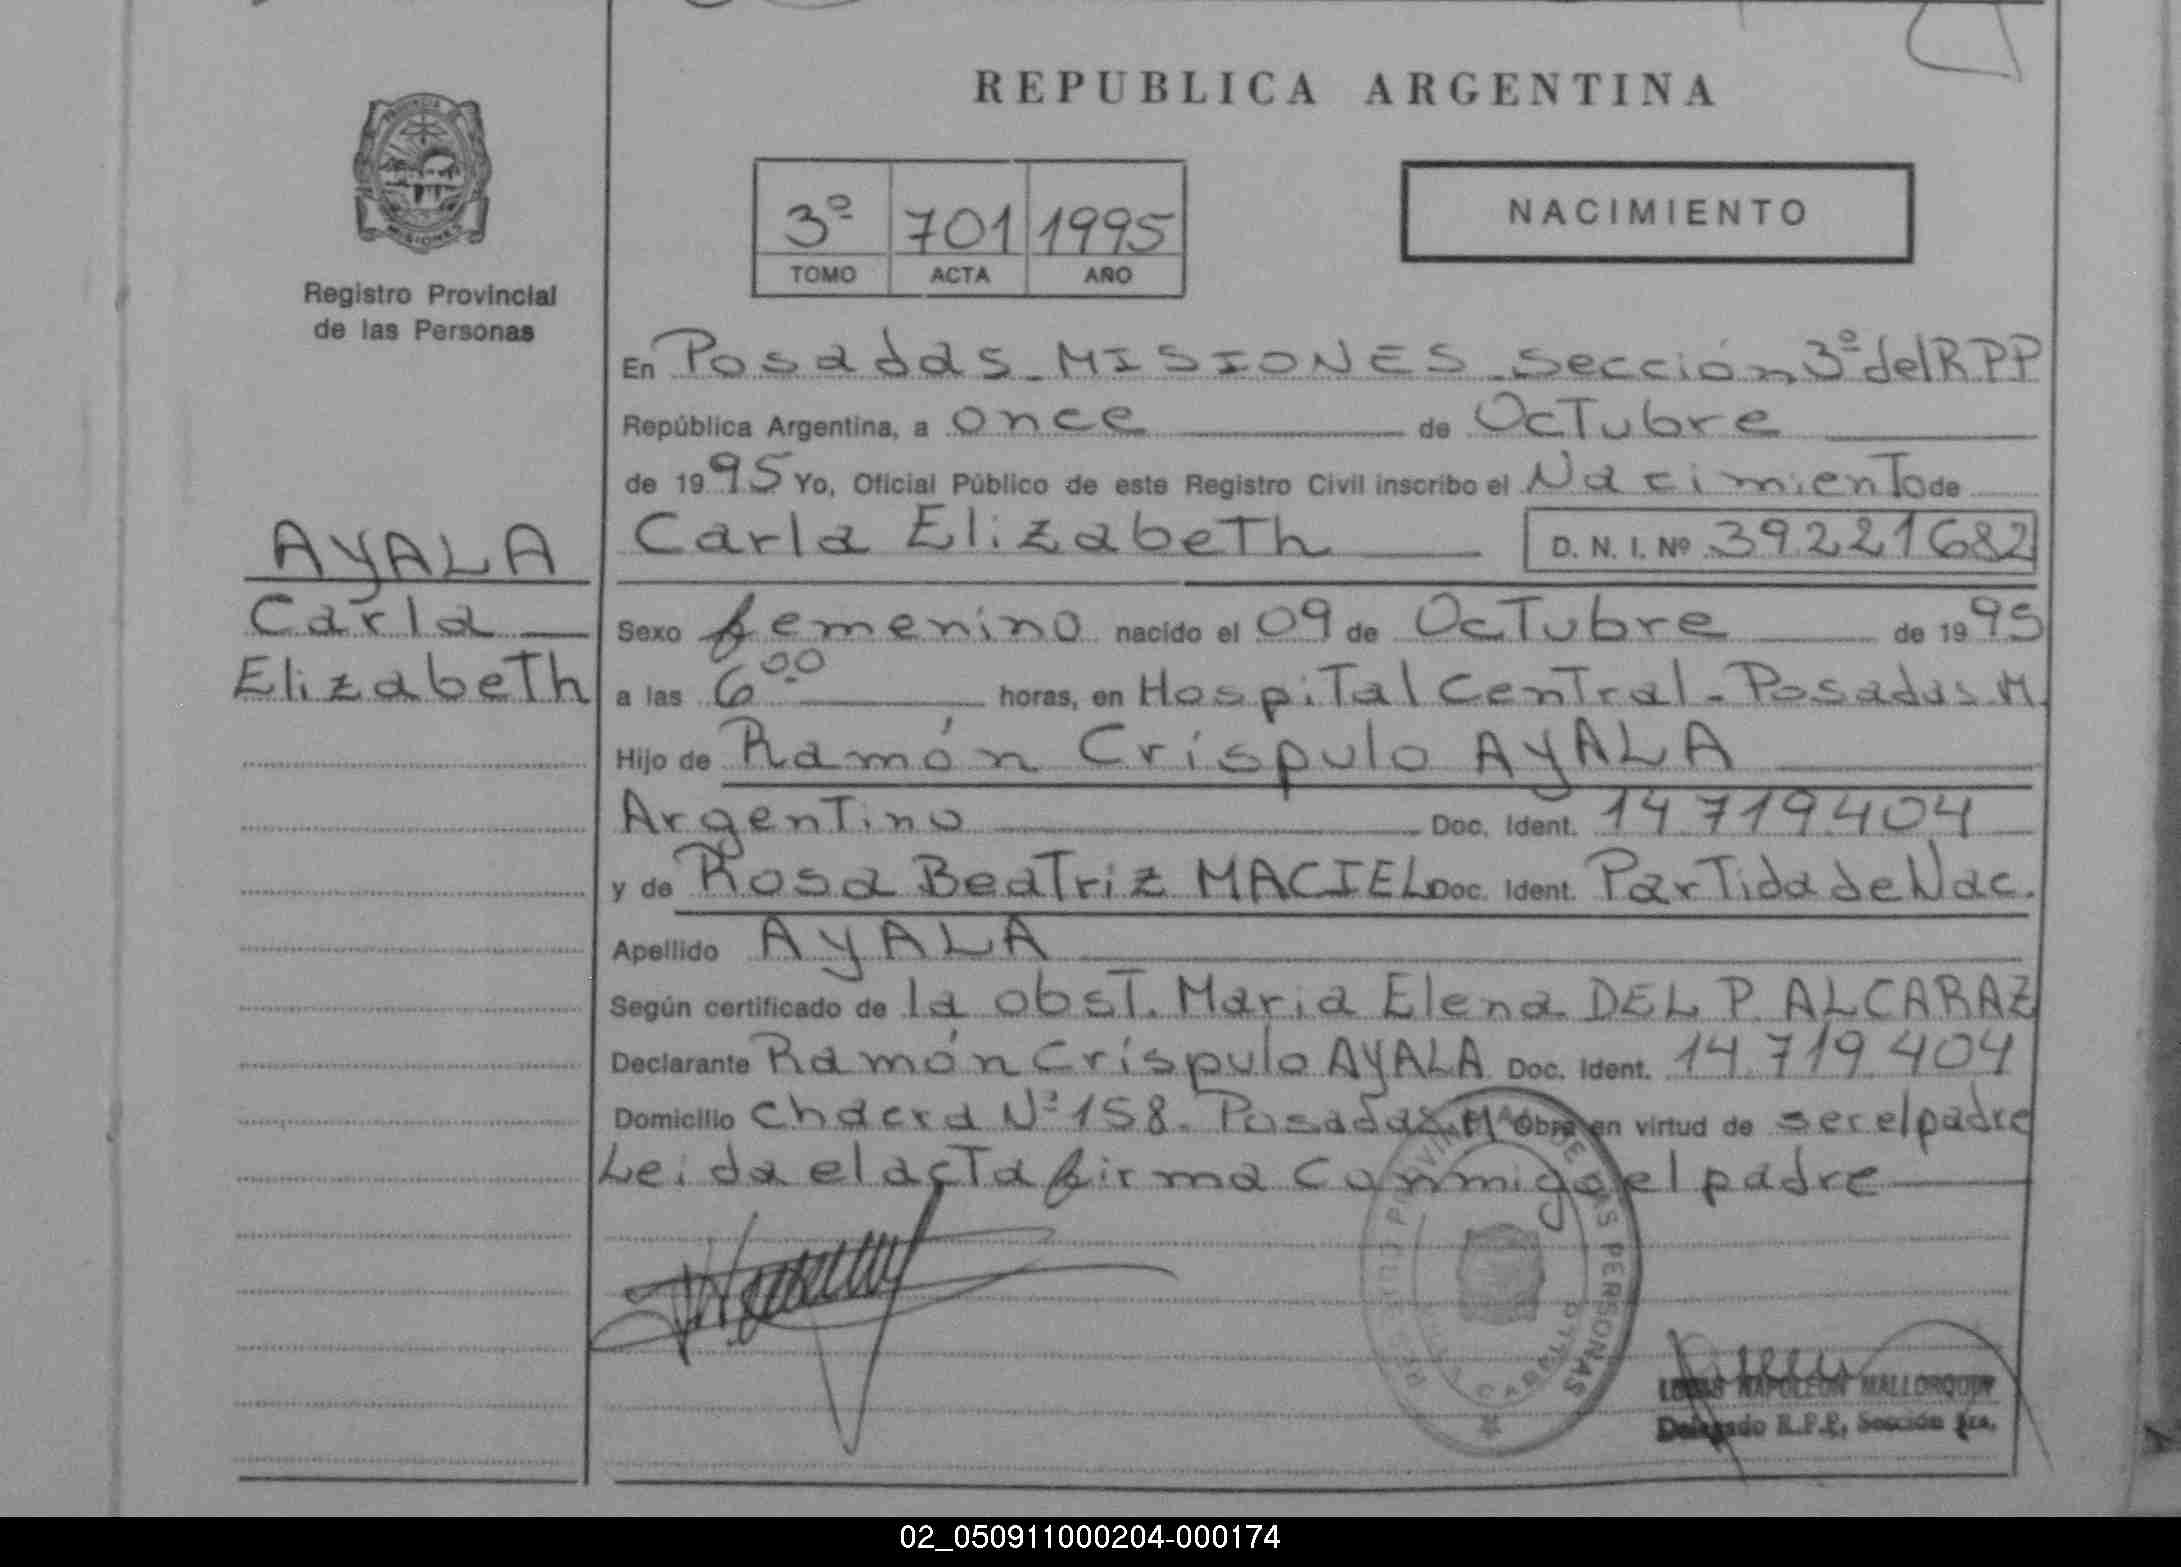 REPUBLICA ARGENTINA
PROVINCIA
MISIONES
Registro Provincial
de las Personas
3º 701 1995
TOMO ACTA AÑO
NACIMIENTO
En Posadas - MISIONES - Sección 3º del RPP
República Argentina, a once de Octubre
de 1995 Yo, Oficial Público de este Registro Civil inscribo el Nacimiento de
Carla Elizabeth D. N. I. Nº 39.221682
AYALA
Carla
Elizabeth
Sexo femenino nacido el 09 de Octubre de 1995
a las 6 00 horas, en Hospital Central - Posadas M.
Hijo de Ramón Críspulo AYALA
Argentino Doc. Ident. 14.719.404
y de Rosa Beatriz MACIEL Doc. Ident. Partida de Nac.
Apellido AYALA
Según certificado de la obst. Maria Elena DEL P. ALCARAZ
Declarante Ramón Críspulo AYALA Doc. Ident. 14.719.404
Domicilio Chacra Nº 158 - Posadas Mº Obra en virtud de ser el padre
Leida el acta firma conmigo el padre
DE LAS PERSONAS
LUCAS NAPOLEON MALLORQUIN
Delegado R.P.P. Sección 3ra.
02_050911000204-000174